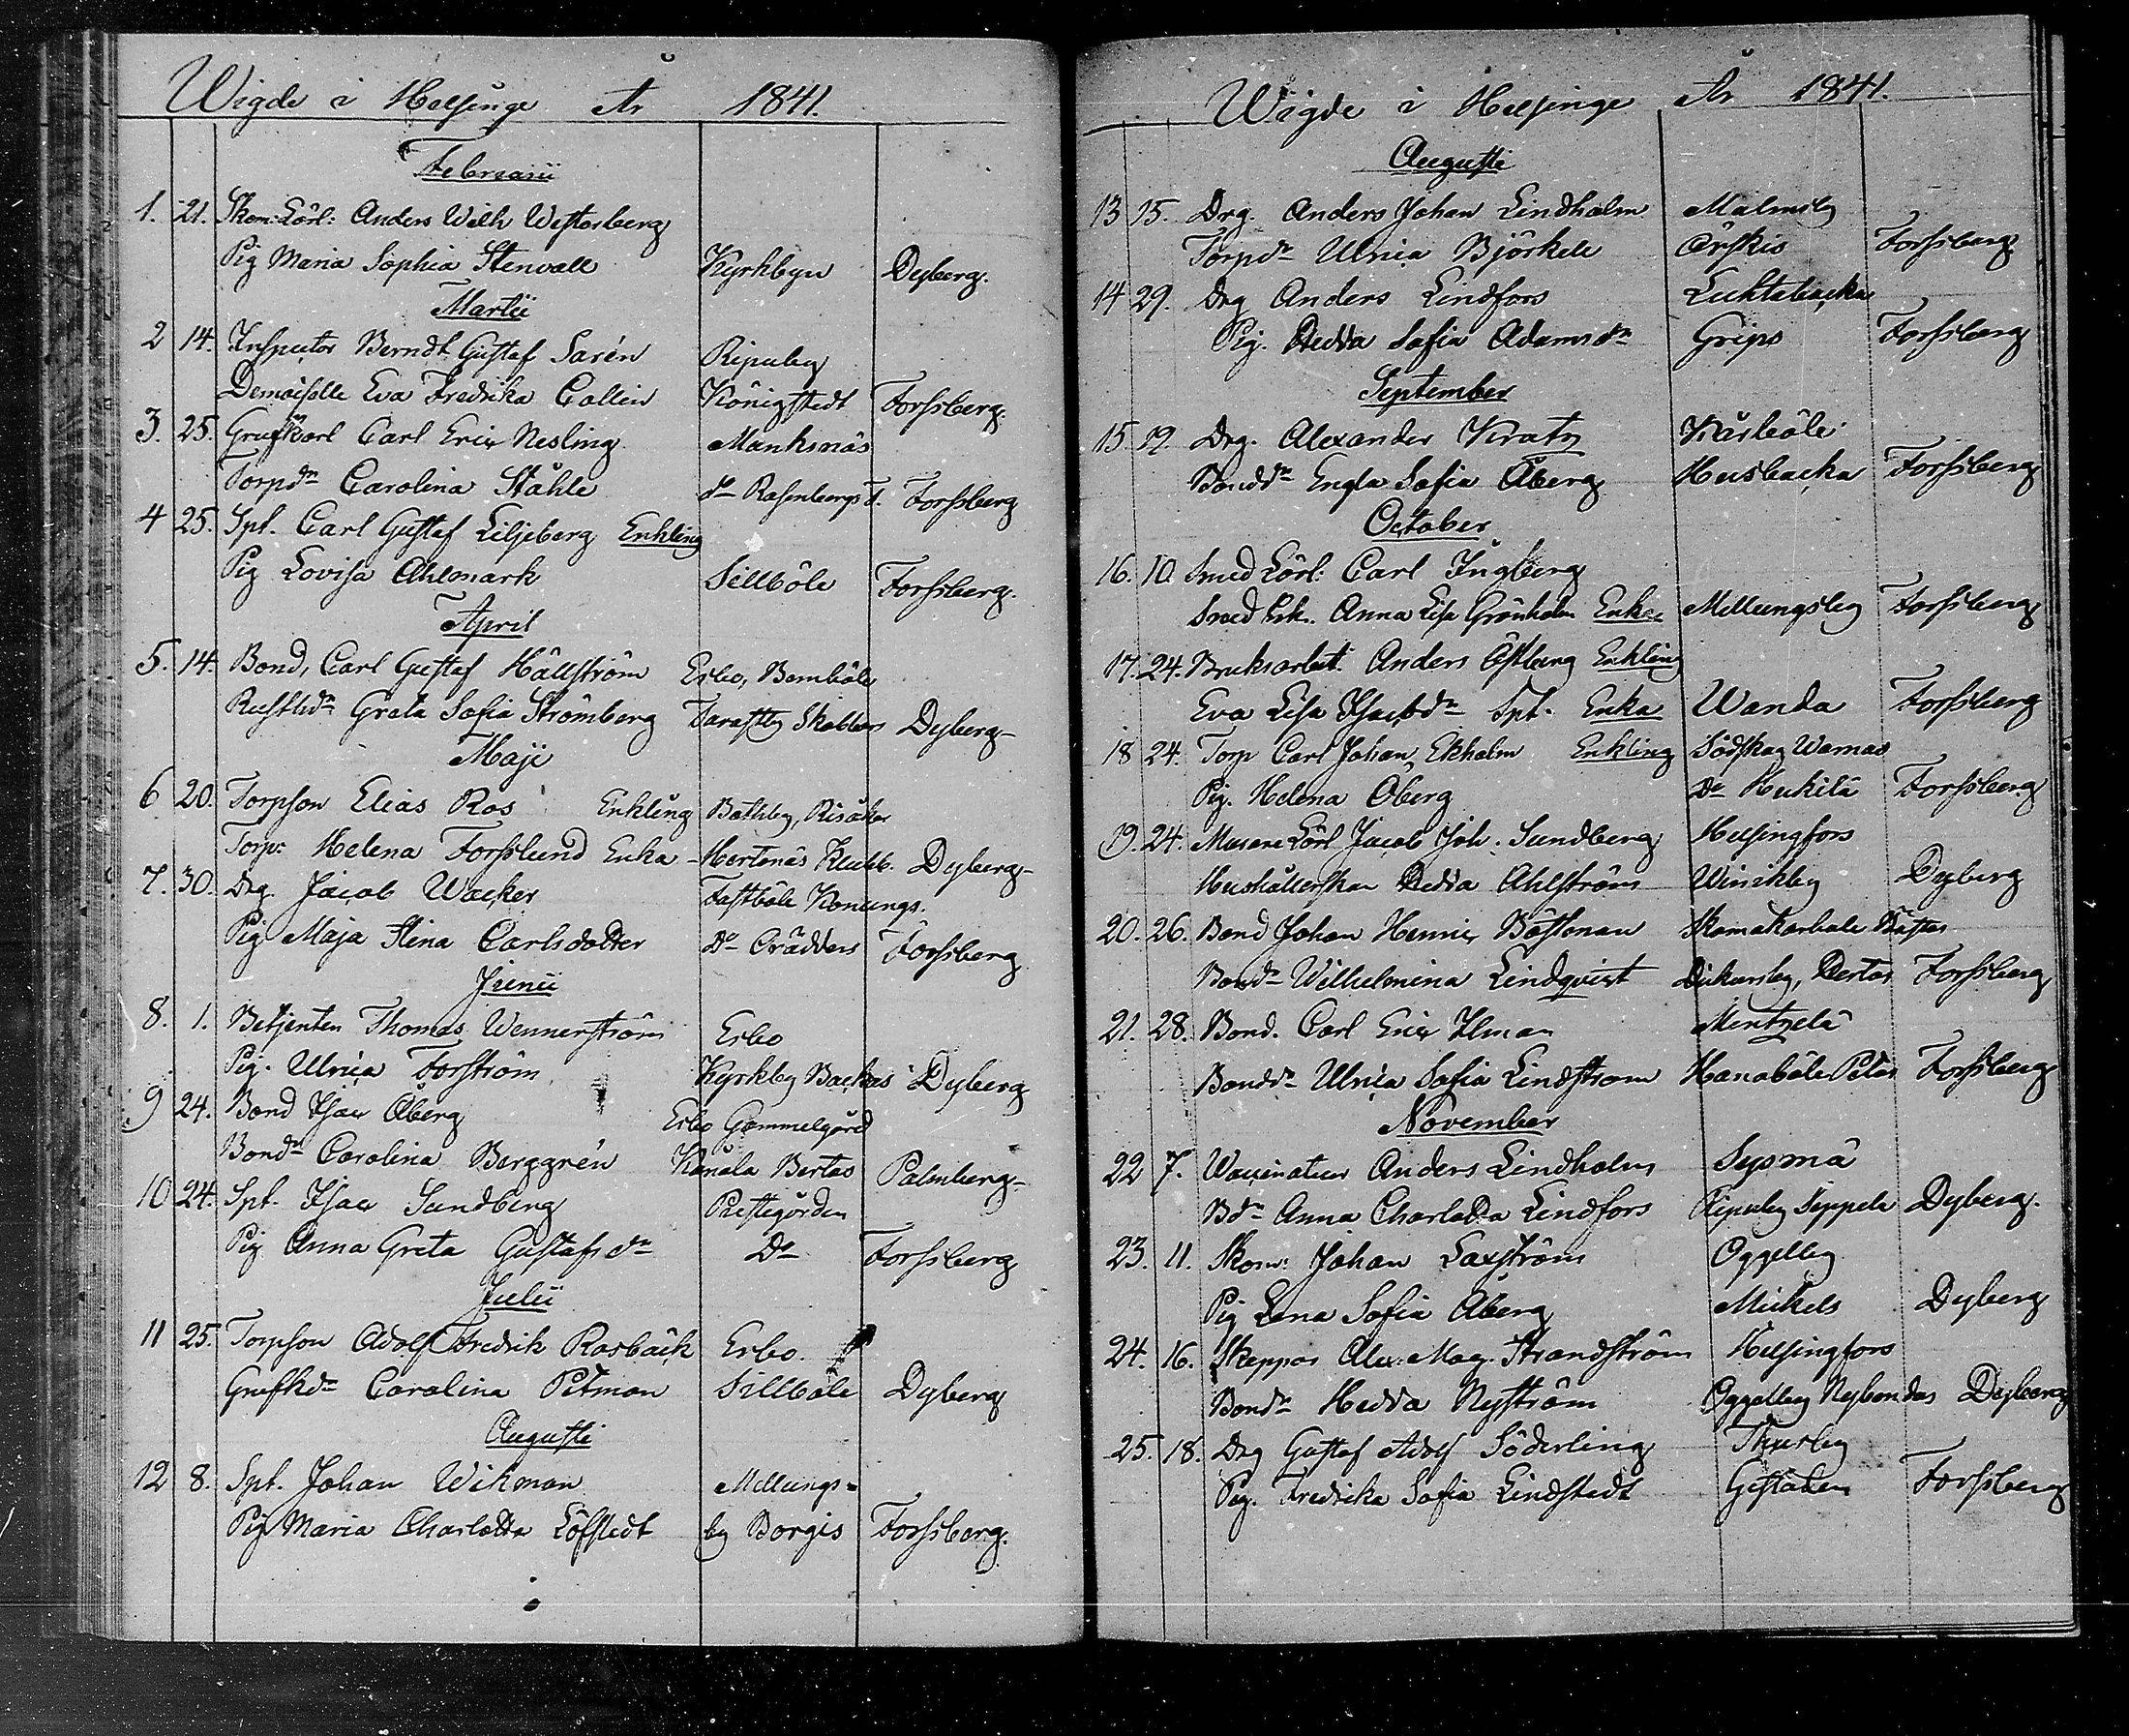 Wigde i Helsinge År 1841.
Februarii
1. 21. Skom: Lärl: Anders Wilh Westerberg
Pig Maria Sophia Stenvall Kyrkbyn Dyberg.
Martii
2 14. Inspector Berndt Gustaf Sarén Ripuby
Demoiselle Eva Fredrika Collin Königstedt Forssberg.
3. 25. Grufkarl Carl Eric Nesling Manksnäs
Torpdr Carolina Ståhle do Rosenbergs T. Forssberg
4 25. Spt. Carl Gustaf Liljeberg Enkling
Pig Lovisa Ahlmark Sillböle Forssberg.
April
5. 14. Bond, Carl Gustaf Hällström Esbo, Bemböle
Rusthdr Greta Sofia Strömberg Tavastby Skatters Dyberg
Maji
6 20. Torpson Elias Ros Enkling Botby, Risåker
Torp: Helena Forsslund Enka Hertonäs Klubb. Dyberg
7. 30. Drg. Jacob Wacker Fastböle Konungs.
Pig Maja Stina Carlsdotter Do Crädders Forssberg
Junii
8. 1. Betjenten Thomas Wennerström Esbo
Pig. Ulrica Forström Kyrkby Backas Dyberg
9 24. Bond Isac Åberg Esbo Gammelgård
Bondr Carolina Berggrén Kånala Bertas Palmberg
10 24. Spt. Isac Sundberg Prestgården
Pig Anna Greta Gustafsdr Do Forssberg
Julii
11 25. Torpson Adolf Fredrik Rosbäck Esbo.
Grufkdr Carolina Pitman Sillböle Dyberg
Augusti
12 8. Spt. Johan Wikman Mellungs-
Pig Maria Charlotta Löfstedt by Borgis Forssberg.
Wigde i Helsinge År 1841.
Augusti
13 15. Drg. Anders Johan Lindholm Malmby
Torpdr Ulrica Björkell Forssberg
14 29. Drg Anders Lindfors Luktabacka
Pig. Hedda Sofia Adamsdr Grips Forssberg
September
15. 19. Drg. Alexander Kratz Kårböle
Bonddr Engla Sofia Åberg Husbacka Forssberg
October
16. 10. Smed Lärl: Carl Ingberg
Smed Enk. Anna Lisa Grönholm Enka Mellungsby Forssberg
17. 24. Bruksarbet. Anders Östberg Enkling
Eva Lisa Isacsdr Spt. Enka Wanda Forssberg
18 24. Torp Carl Johan Ekholm Enkling Södskog Warnas
Pig. Helena Öberg Do Hukila Forssberg
19. 24. Murare Lärl Jacob Joh. Sundberg Helsingfors
Hushållerskan Hedda Ahlström Winikby Dyberg
20. 26. Bond Johan Henric Böstman Skomakarböle Böstas
Bondr Wilhelmina Lindqvist Dickursby, Bertas Forssberg
21. 28. Bond. Carl Eric Ilman Mentzelä
Bonddr Ulrica Sofia Lindström Hanaböle Petas Forssberg
November
22 7. Waccinateur Anders Lindholm Sysmä
Bdr Anna Charlotta Lindfors Ripuby Seppele Dyberg.
23. 11. Skom: Johan Laxström Oggelby
Pig Lena Sofia Åberg Mickels Dyberg
24. 16. Skeppar Alex. Mag. Strandström Helsingfors
Bondr Hedda Nyström Oggelby Nybondas Dyberg
25. 18. Drg Gustaf Adolf Söderling Thusby
Pig. Fredrika Sofia Lindstedt Forssberg